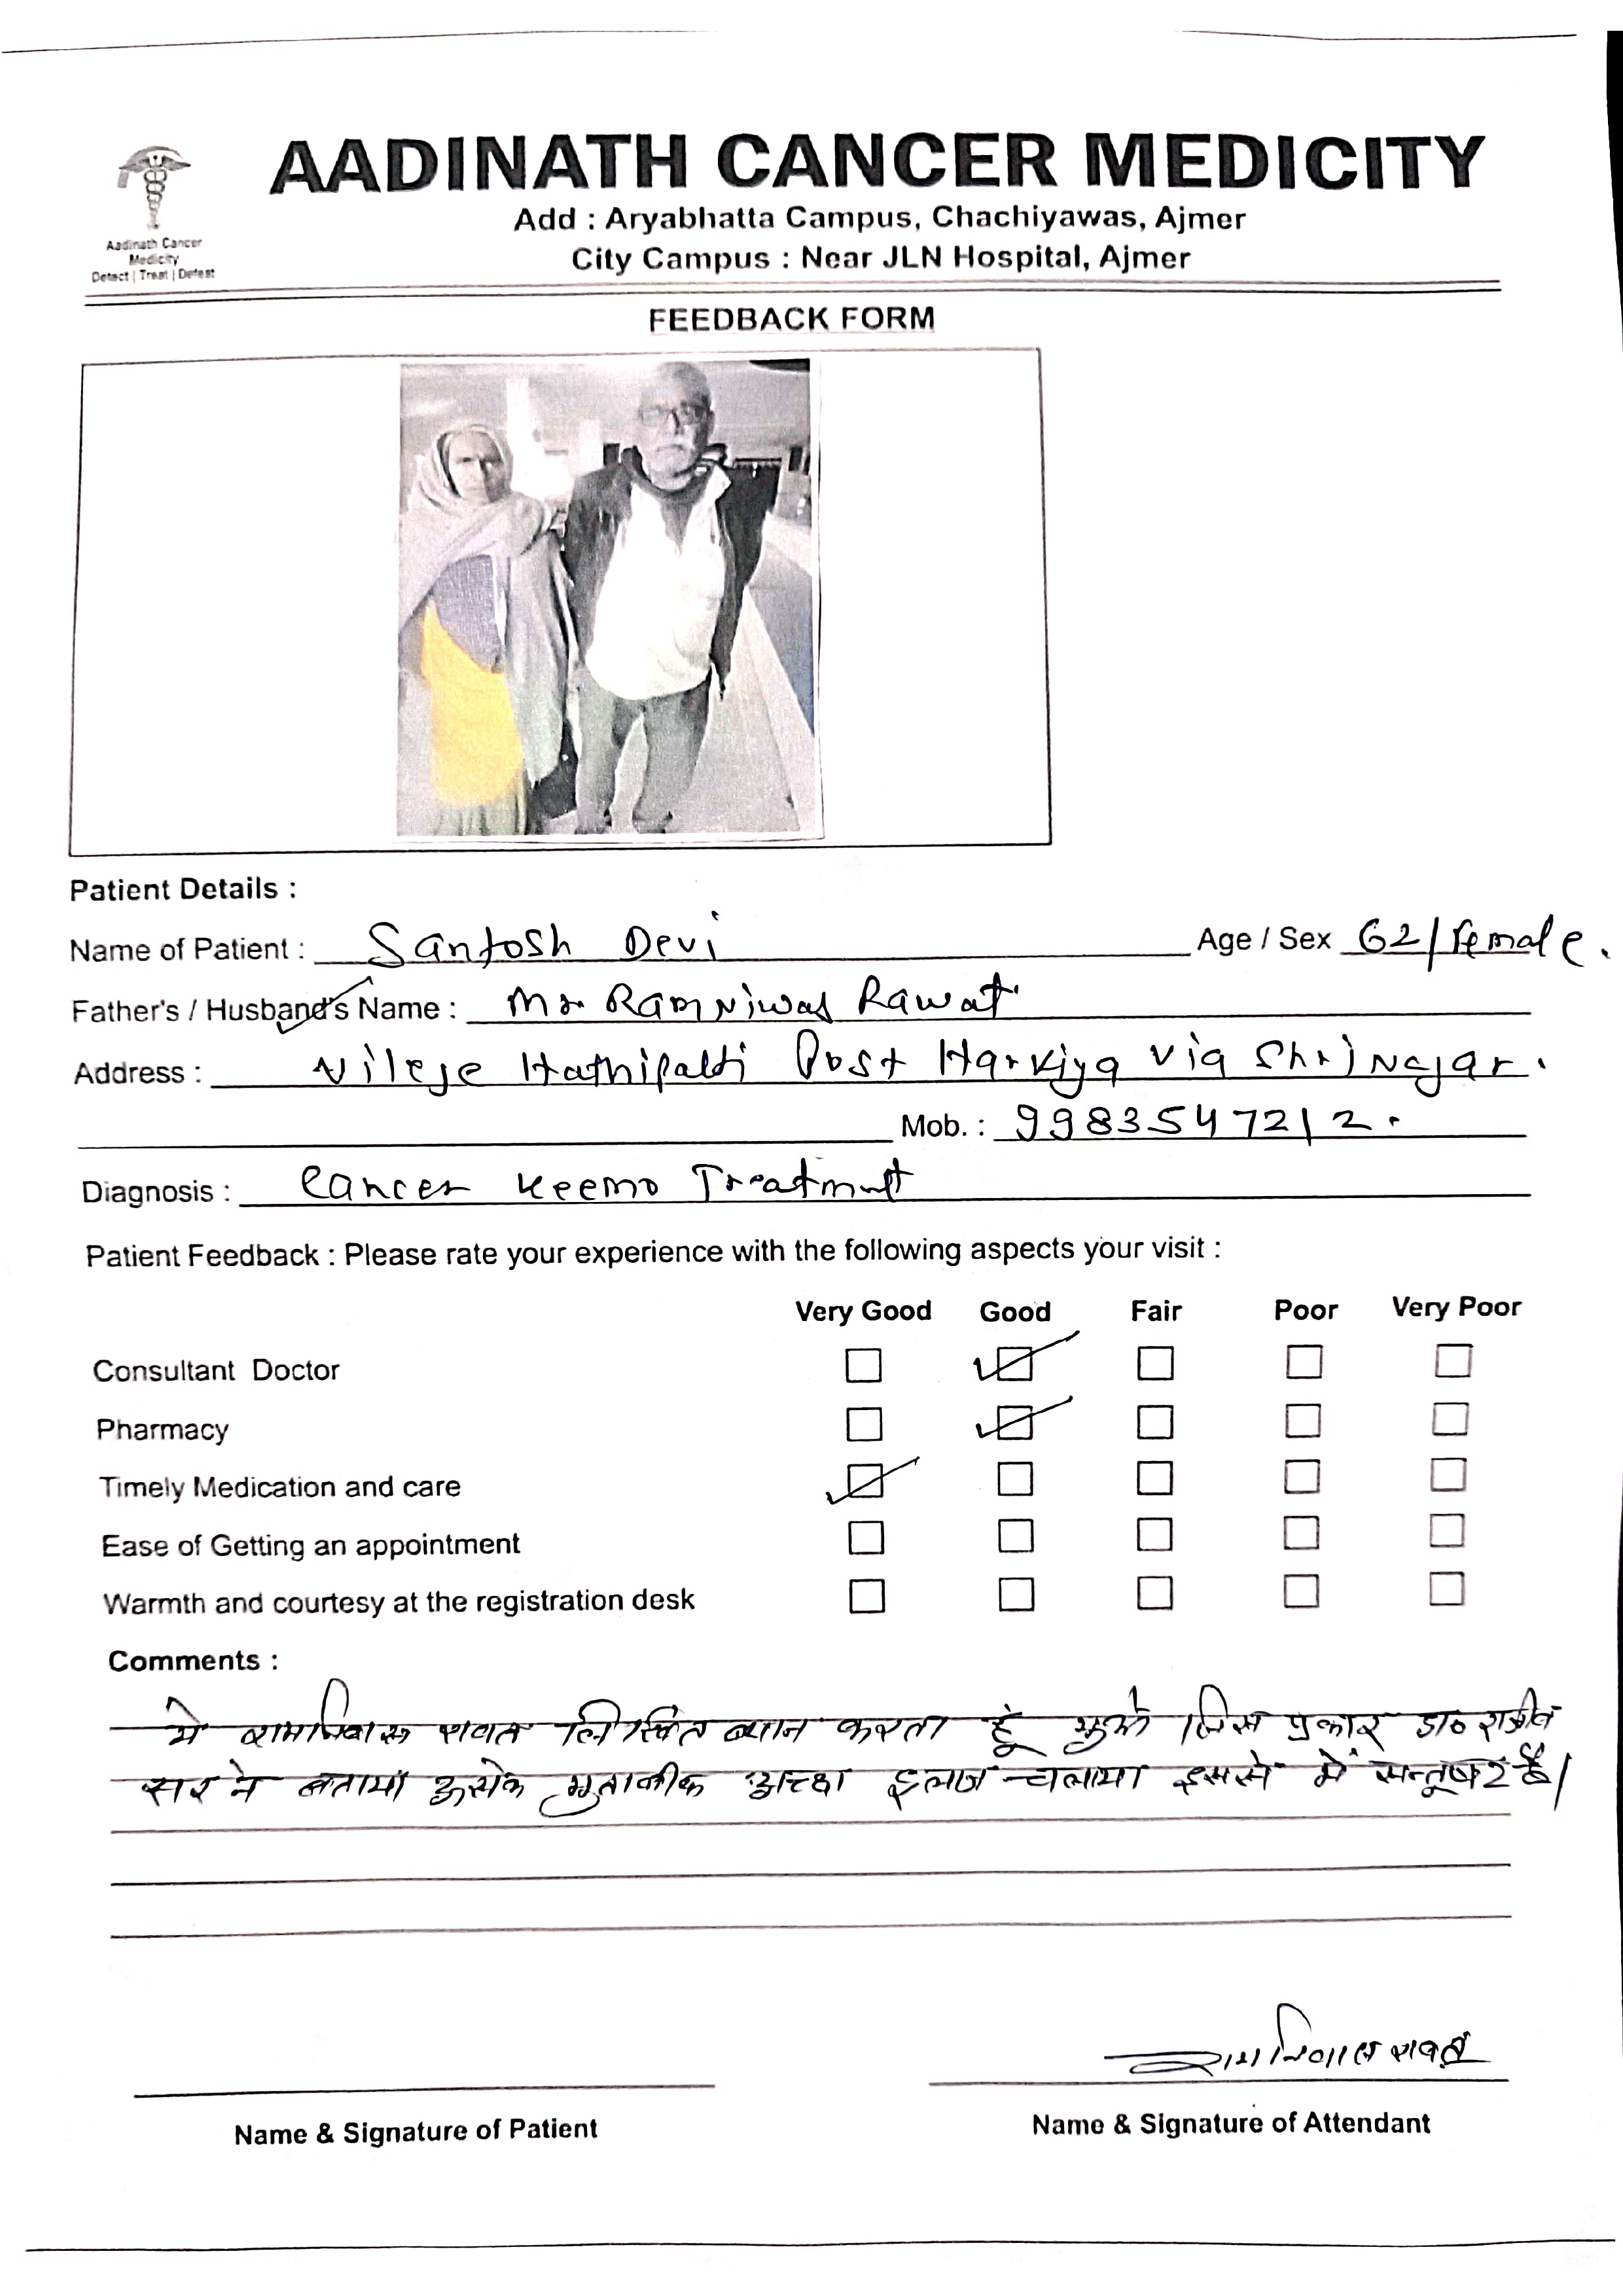 AADINATH CANCER MEDICITY
Aadinath Cancer
Medicity
Detect | Treat | Defeat
Add : Aryabhatta Campus, Chachiyawas, Ajmer
City Campus : Near JLN Hospital, Ajmer
FEEDBACK FORM
Patient Details :
Name of Patient : Santosh Devi Age / Sex 62/Female.
Father's / Husband's Name : Mr. Ramniwas Rawat
Address : Vilege Hathipatti Post Harkiya via Shrinagar.
Mob. : 9983547212.
Diagnosis : Cancer Keemo Treatment
Patient Feedback : Please rate your experience with the following aspects your visit :
Very Good Good Fair Poor Very Poor
Consultant Doctor
Pharmacy
Timely Medication and care
Ease of Getting an appointment
Warmth and courtesy at the registration desk
Comments :
मे रामनिवास रावत लिखित ब्यान करता हूं मुझे जिस प्रकार डा० राजीव
सर ने बताया मुताबीक अच्छा इलाज चलाया इससे में सन्तूष्ट है।
रामनिवास रावत
Name & Signature of Patient Name & Signature of Attendant